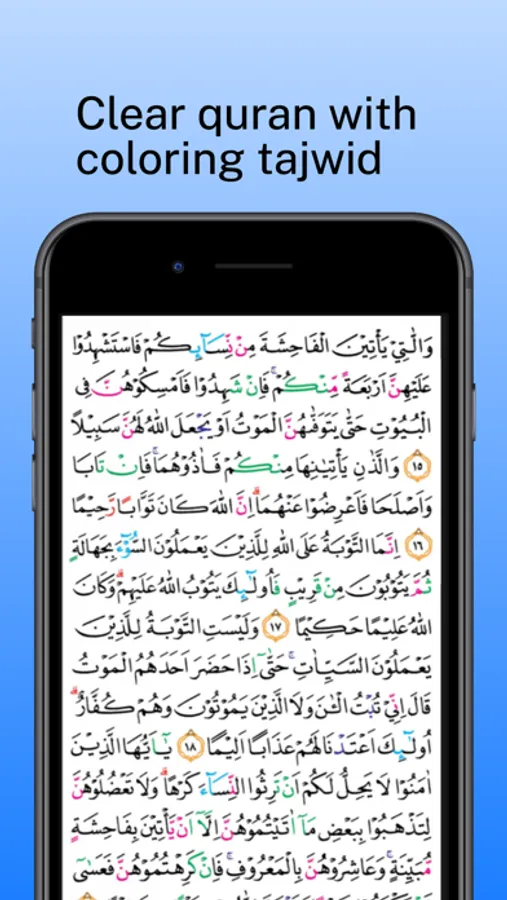 Clear quran with
coloring tajwid
وَالّٰتِيْ يَأْتِيْنَ الْفَاحِشَةَ مِنْ نِّسَاۤىِٕكُمْ فَاسْتَشْهِدُوْا
عَلَيْهِنَّ اَرْبَعَةً مِّنْكُمْ ۚ فَاِنْ شَهِدُوْا فَاَمْسِكُوْهُنَّ فِى
الْبُيُوْتِ حَتّٰى يَتَوَفّٰهُنَّ الْمَوْتُ اَوْ يَجْعَلَ اللّٰهُ لَهُنَّ سَبِيْلًا
١٥ وَالَّذٰنِ يَأْتِيٰنِهَا مِنْكُمْ فَاٰذُوْهُمَا ۚ فَاِنْ تَابَا
وَاَصْلَحَا فَاَعْرِضُوْا عَنْهُمَا ۗ اِنَّ اللّٰهَ كَانَ تَوَّابًا رَّحِيْمًا
١٦ اِنَّمَا التَّوْبَةُ عَلَى اللّٰهِ لِلَّذِيْنَ يَعْمَلُوْنَ السُّوْۤءَ بِجَهَالَةٍ
ثُمَّ يَتُوْبُوْنَ مِنْ قَرِيْبٍ فَاُولٰۤىِٕكَ يَتُوْبُ اللّٰهُ عَلَيْهِمْ ۗ وَكَانَ
اللّٰهُ عَلِيْمًا حَكِيْمًا ١٧ وَلَيْسَتِ التَّوْبَةُ لِلَّذِيْنَ
يَعْمَلُوْنَ السَّيِّاٰتِ ۚ حَتّٰىٓ اِذَا حَضَرَ اَحَدَهُمُ الْمَوْتُ
قَالَ اِنِّيْ تُبْتُ الْـٰٔنَ وَلَا الَّذِيْنَ يَمُوْتُوْنَ وَهُمْ كُفَّارٌ ۗ
اُولٰۤىِٕكَ اَعْتَدْنَا لَهُمْ عَذَابًا اَلِيْمًا ١٨ يٰٓاَيُّهَا الَّذِيْنَ
اٰمَنُوْا لَا يَحِلُّ لَكُمْ اَنْ تَرِثُوا النِّسَاۤءَ كَرْهًا ۗ وَلَا تَعْضُلُوْهُنَّ
لِتَذْهَبُوْا بِبَعْضِ مَآ اٰتَيْتُمُوْهُنَّ اِلَّآ اَنْ يَّأْتِيْنَ بِفَاحِشَةٍ
مُّبَيِّنَةٍ ۚ وَعَاشِرُوْهُنَّ بِالْمَعْرُوْفِ ۚ فَاِنْ كَرِهْتُمُوْهُنَّ فَعَسٰٓى